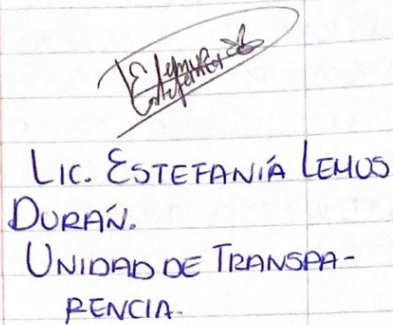 LIC. ESTEFANÍA LEMUS
DURÁN.
UNIDAD DE TRANSPA-
RENCIA.